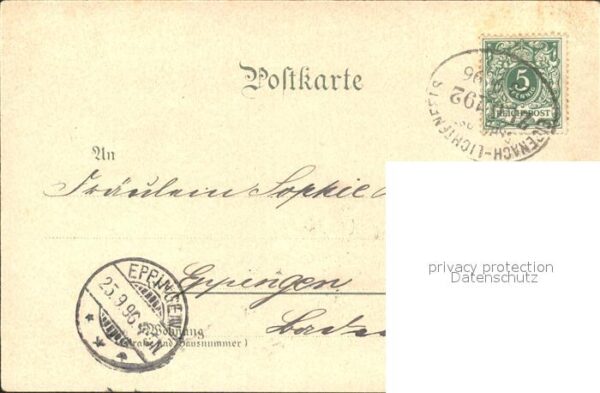 Postkarte
5
PFENNIG
REICHSPOST
96
192
EISENACH-LICHTENFELS
An
Fräulein Sophie
privacy protection
Datenschutz
Eppingen
Baden
EPPINGEN
25.9.96
Wohnung
(Straße und Hausnummer)